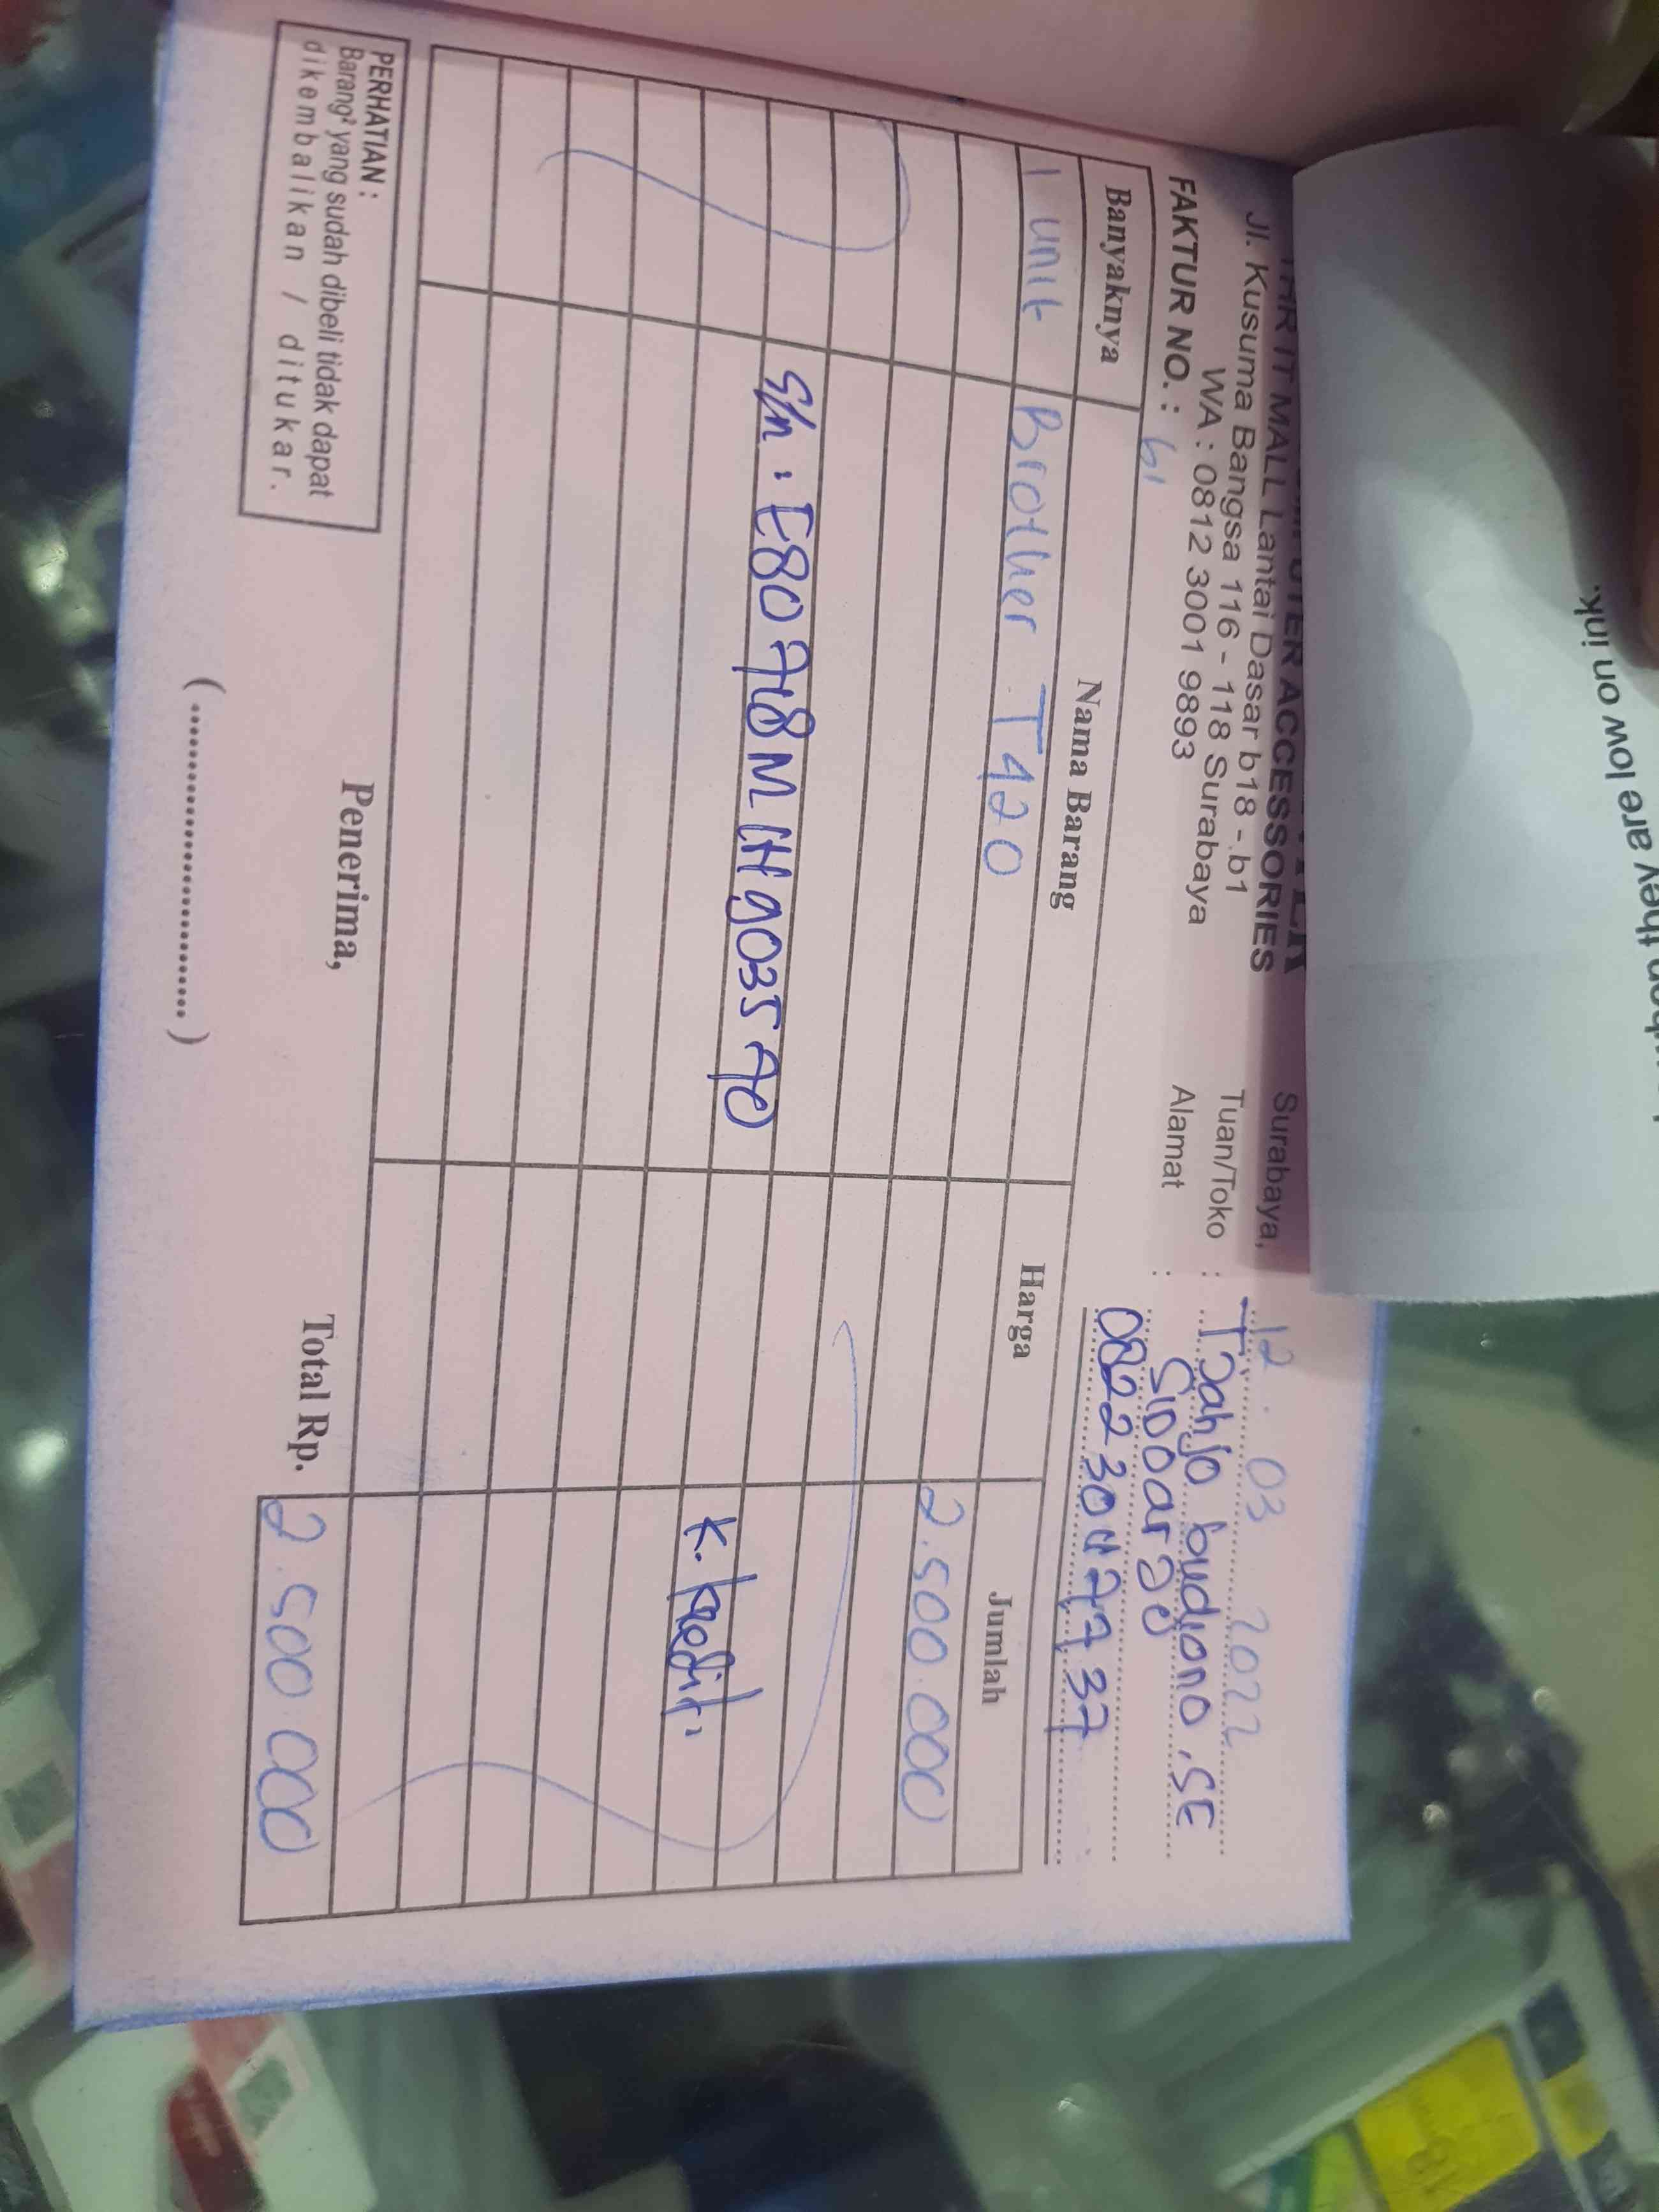 COMPUTER ACCESSORIES
THR IT MALL Lantai Dasar b18 - b1
Jl. Kusuma Bangsa 116 - 118 Surabaya
WA : 0812 3001 9893
FAKTUR NO. : 61
Surabaya, 12 . 03 2022
Tuan/Toko : Tjahjo budiono, SE
Alamat : Sidoarjo
Banyaknya Nama Barang Harga Jumlah
1 unit Brother T420 2.500.000
S/n : E80718M1H903570
K. kredit.
Total Rp. 2.500.000
PERHATIAN :
Barang² yang sudah dibeli tidak dapat
dikembalikan / ditukar.
Penerima,
(..............................)
they are low on ink.